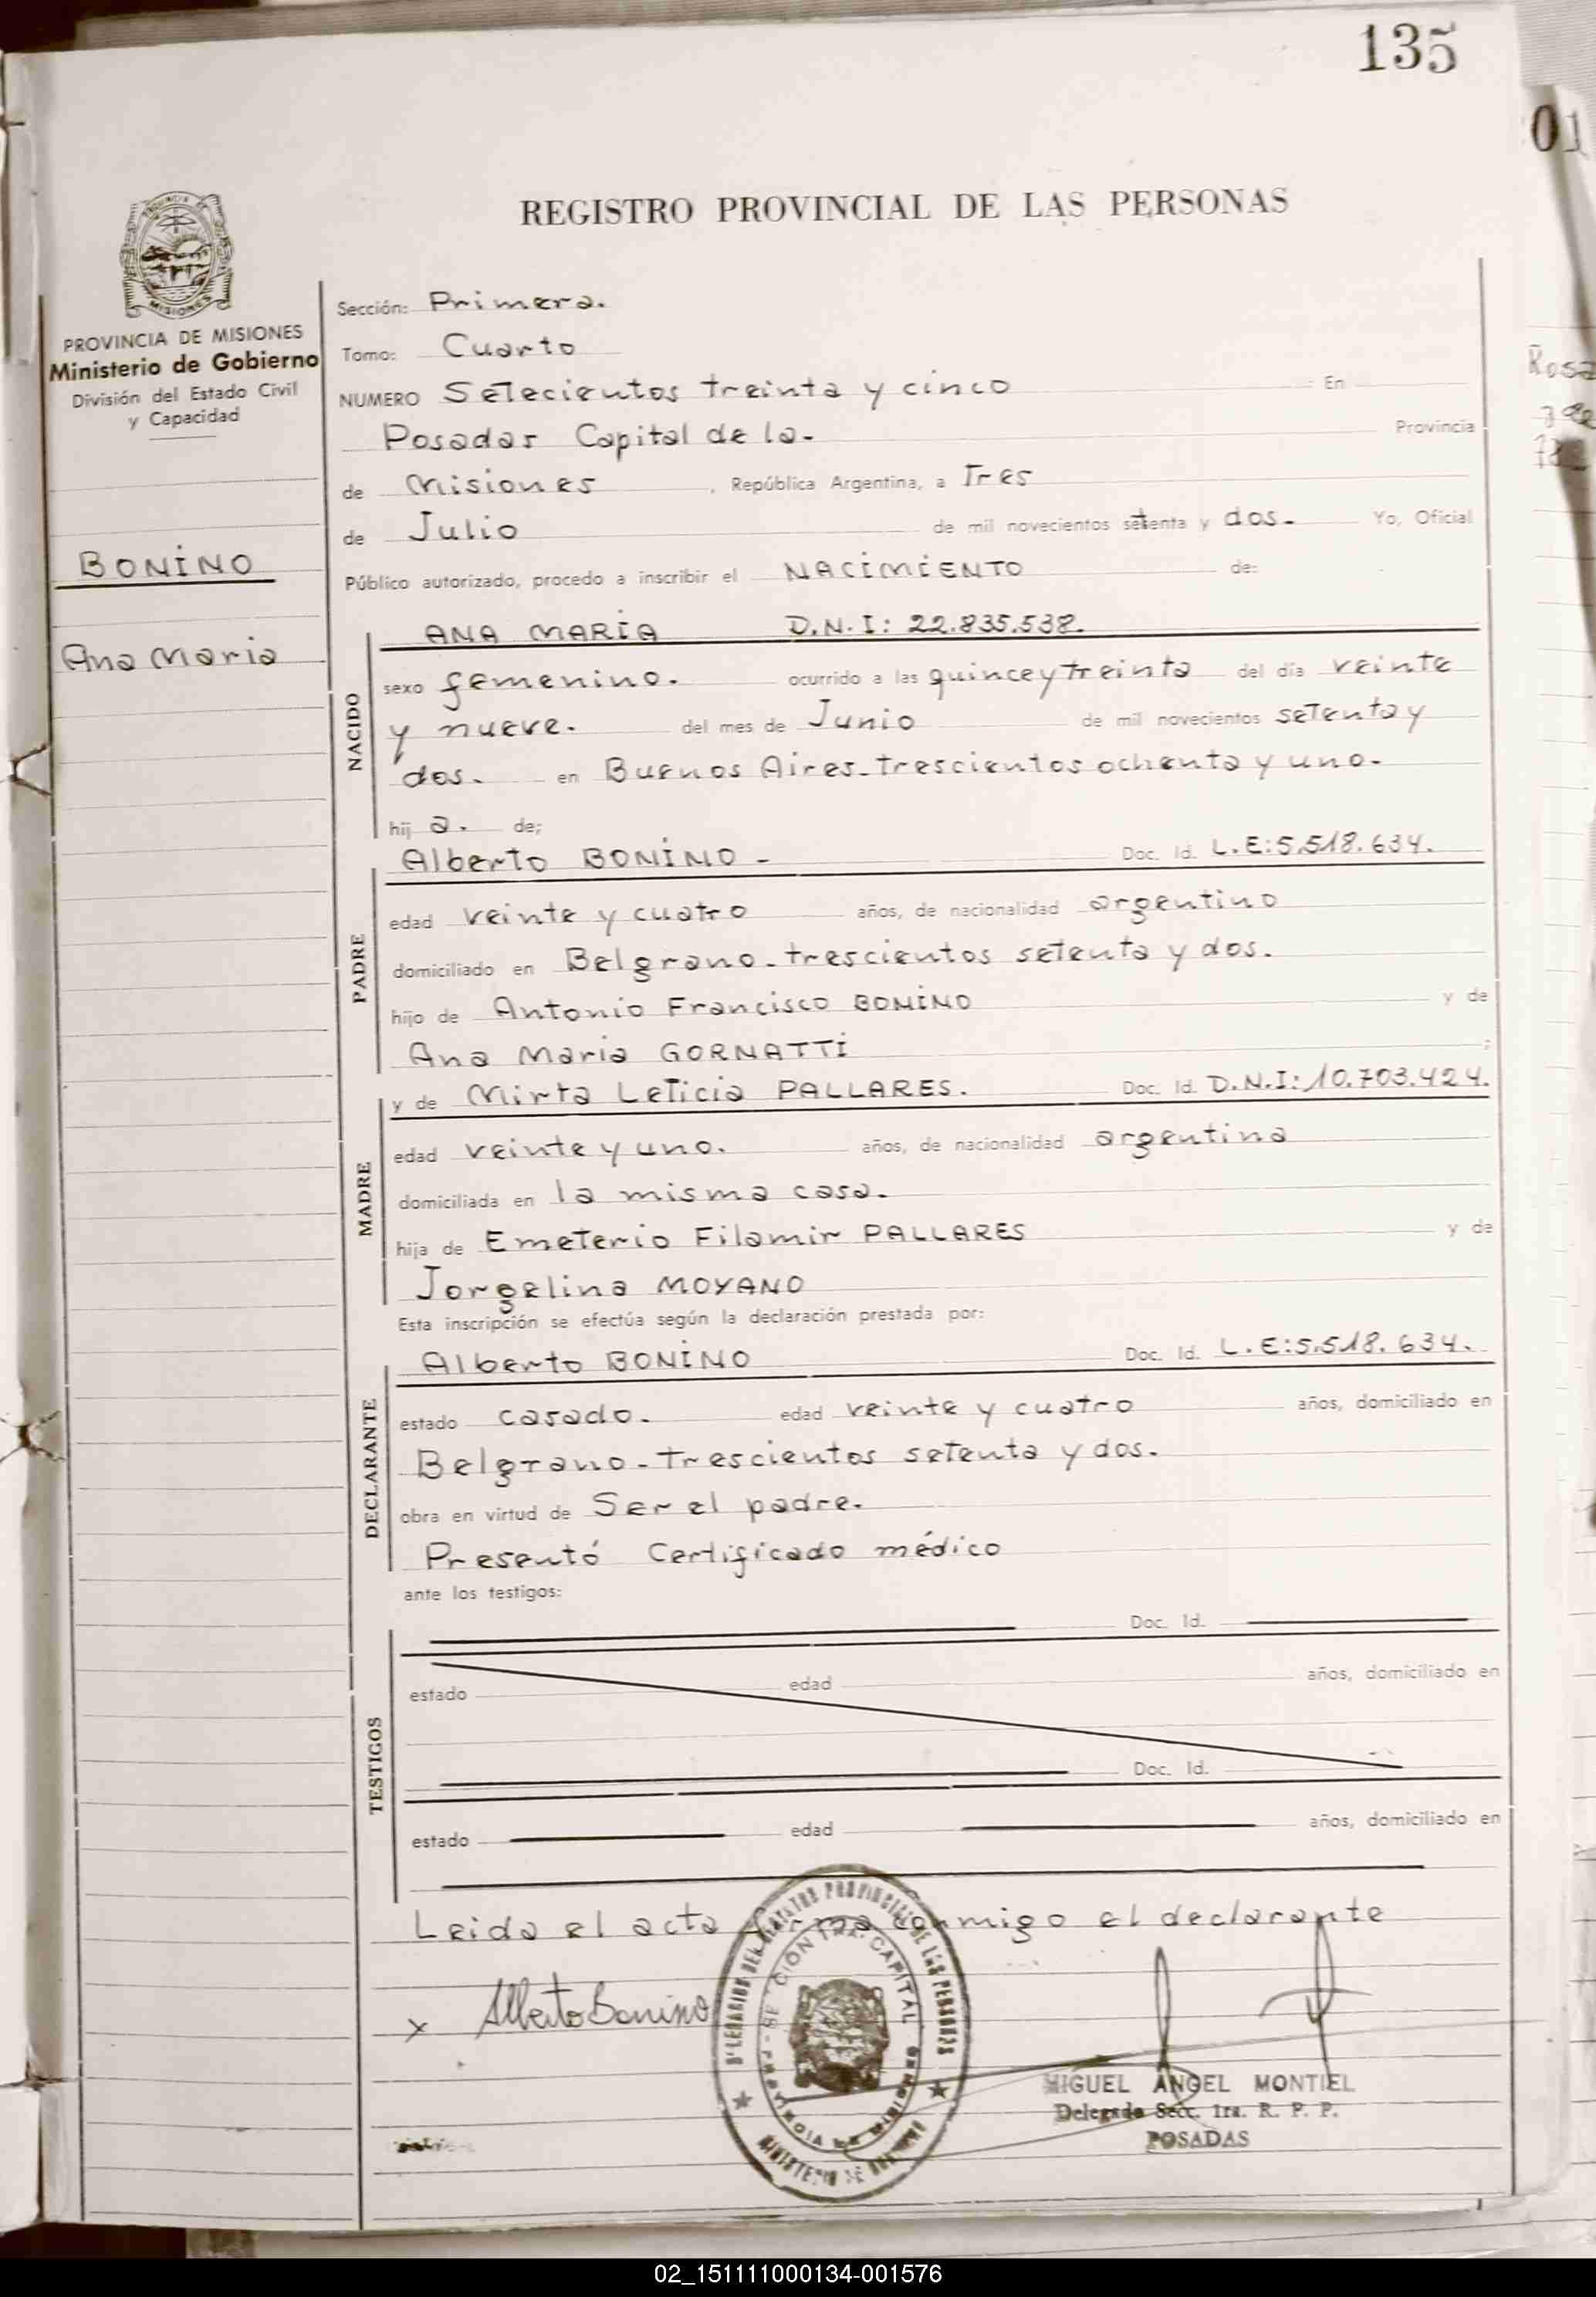 135
01
REGISTRO PROVINCIAL DE LAS PERSONAS
PROVINCIA DE MISIONES
Ministerio de Gobierno
División del Estado Civil
y Capacidad
BONINO
Ana Maria
Sección: Primera.
Tomo: Cuarto
NUMERO Setecientos treinta y cinco En
Posadas Capital de la- Provincia
de Misiones, República Argentina, a Tres
de Julio de mil novecientos setenta y dos.- Yo, Oficial
Público autorizado, procedo a inscribir el NACIMIENTO de:
NACIDO
ANA MARIA D.N.I: 22.835.538.
sexo femenino. ocurrido a las quince y treinta del día veinte
y nueve. del mes de Junio de mil novecientos setenta y
dos. en Buenos Aires-trescientos ochenta y uno-
hij a. de;
PADRE
Alberto BONINO - Doc. Id. L.E:5.518.634.
edad veinte y cuatro años, de nacionalidad argentino
domiciliado en Belgrano-trescientos setenta y dos.
hijo de Antonio Francisco BONINO y de
Ana Maria GORNATTI ;
MADRE
y de Mirta Leticia PALLARES. Doc. Id. D.N.I:10.703.424.
edad veinte y uno. años, de nacionalidad argentina
domiciliada en la misma casa.
hija de Emeterio Filamir PALLARES y de
Jorgelina MOYANO
Esta inscripción se efectúa según la declaración prestada por:
DECLARANTE
Alberto BONINO Doc. Id. L.E:5.518.634.
estado casado. edad veinte y cuatro años, domiciliado en
Belgrano-trescientos setenta y dos.
obra en virtud de Ser el padre.
Presentó Certificado médico
ante los testigos:
TESTIGOS
Doc. Id.
estado edad años, domiciliado en
Doc. Id.
estado edad años, domiciliado en
Leida el acta firma conmigo el declarante
x Alberto Bonino
MIGUEL ANGEL MONTIEL
Delegado Secc. 1ra. R. P. P.
POSADAS
02_151111000134-001576